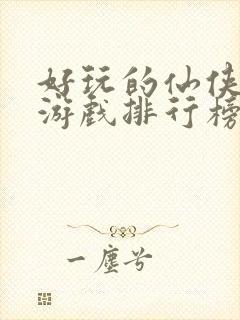 好玩的仙侠
游戏排行榜
一尘兮